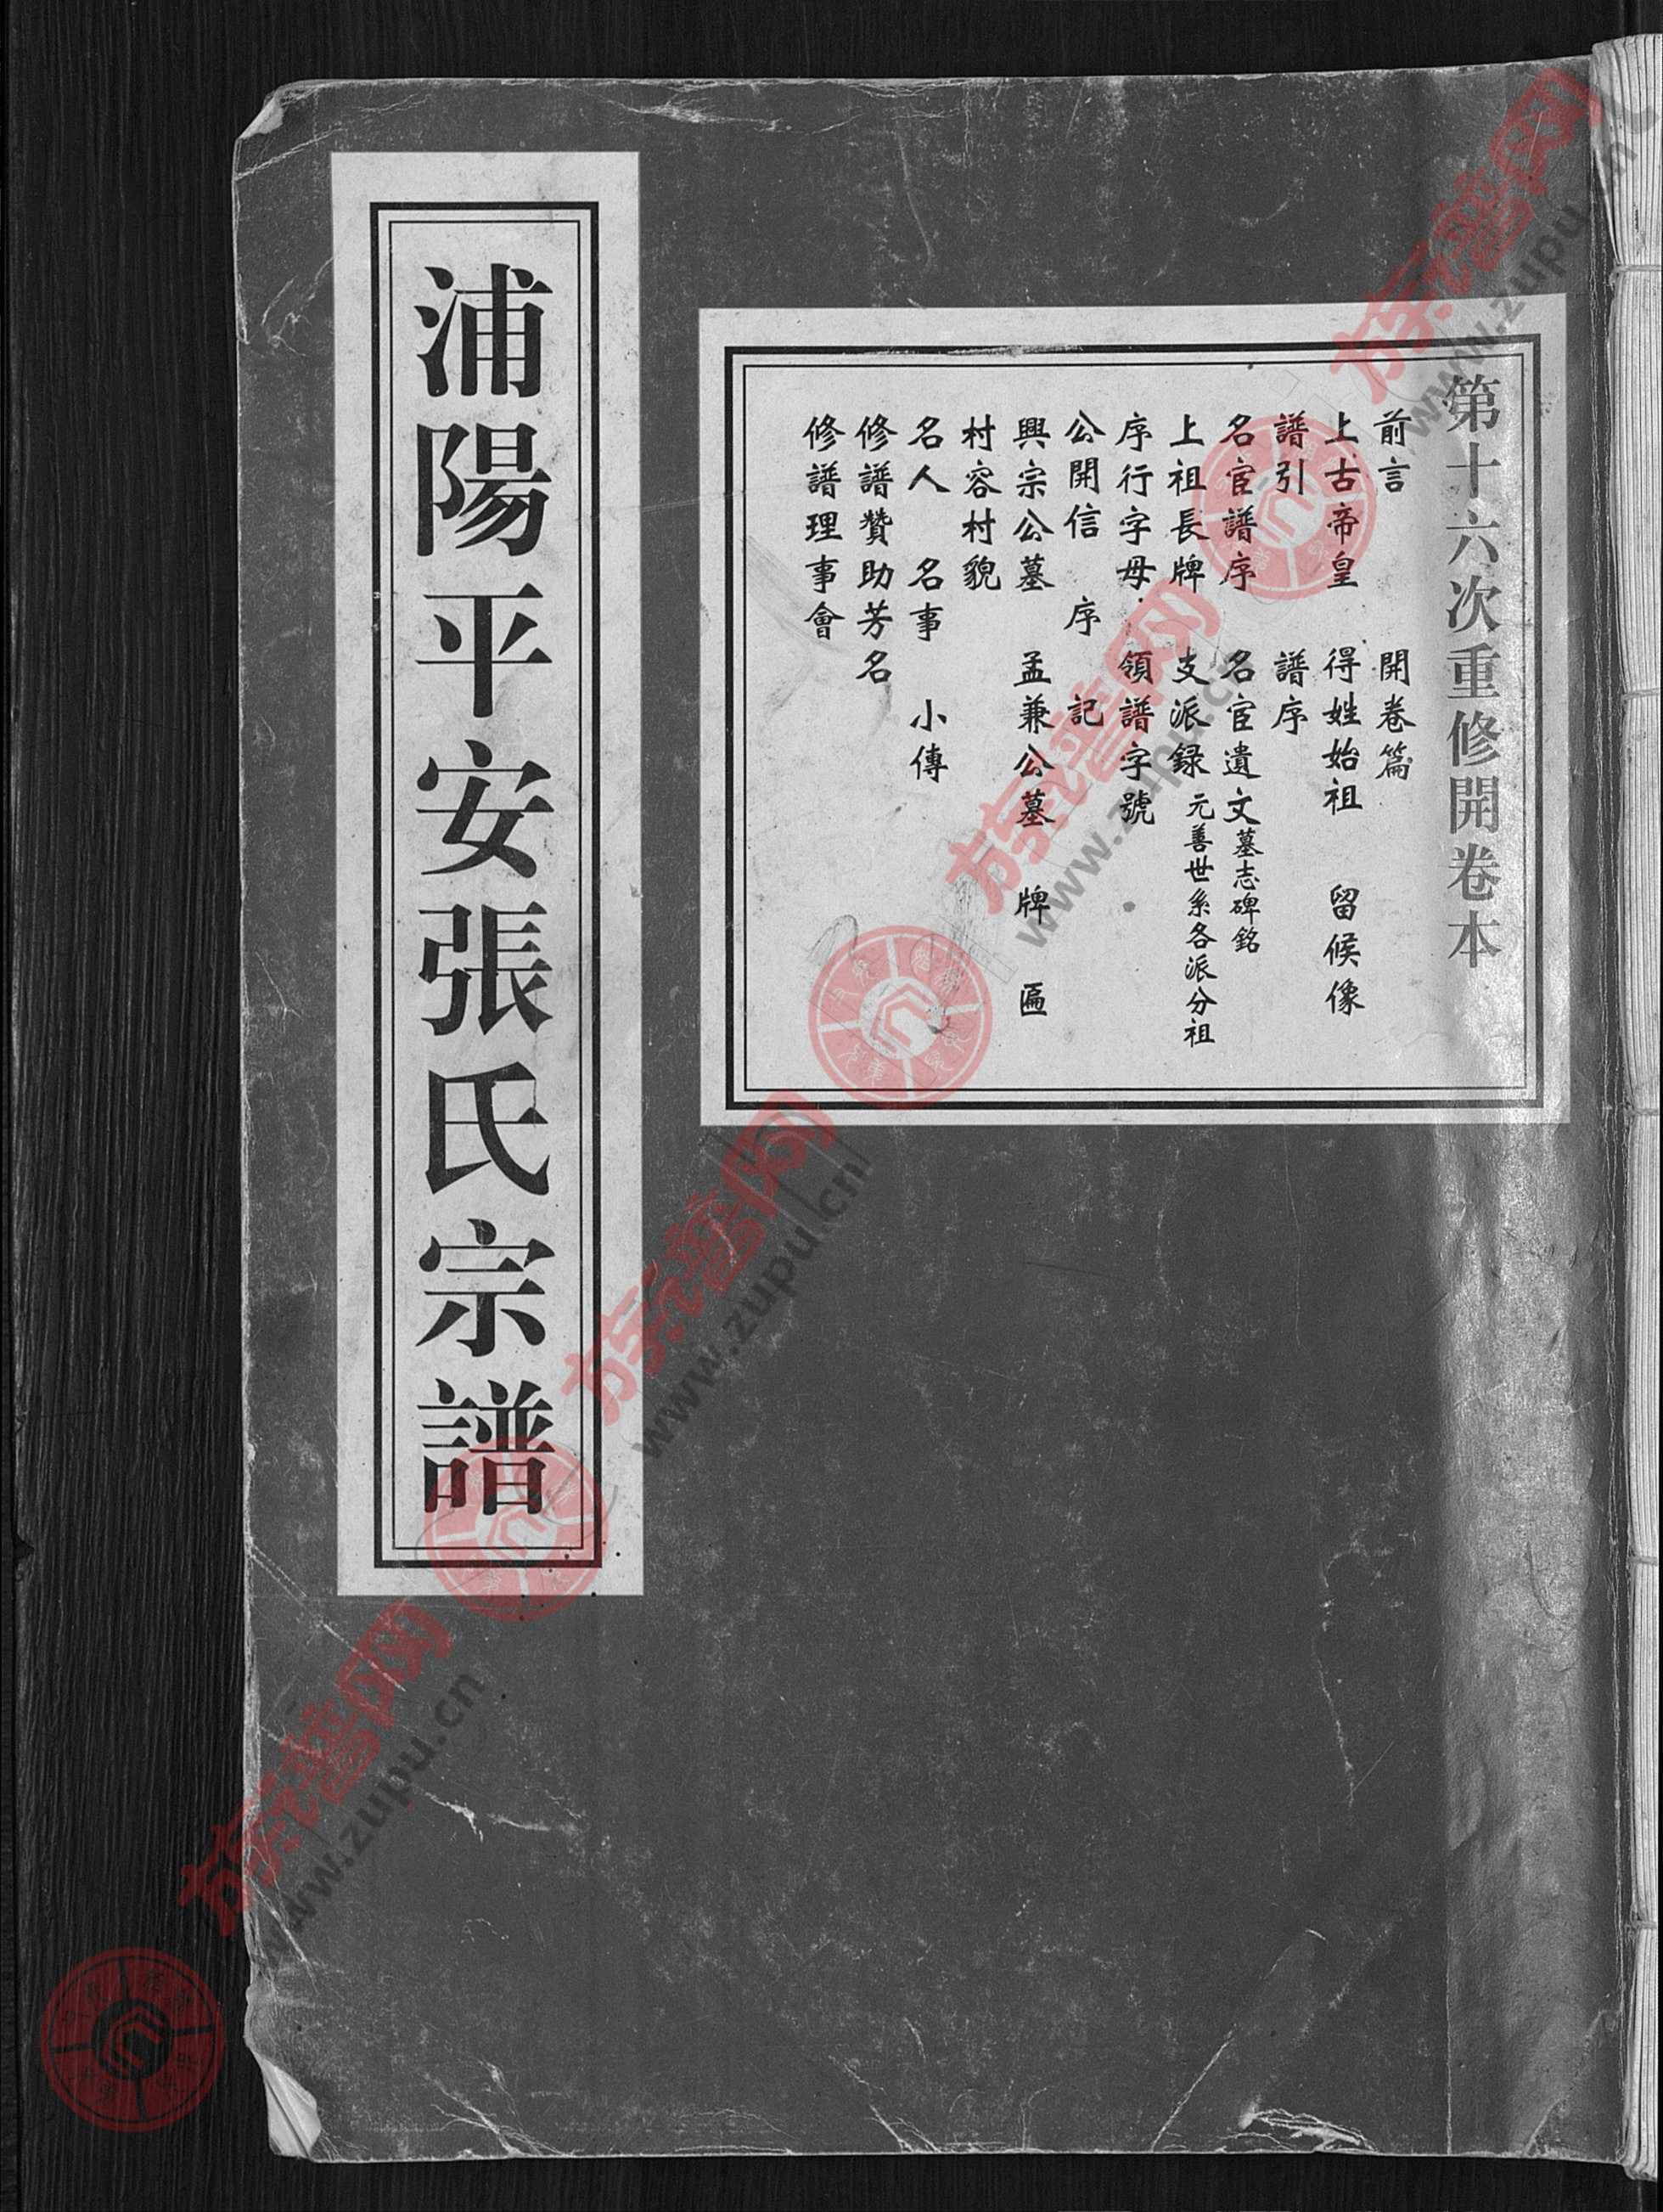 第十六次重修開卷本
前言 開卷篇
上古帝皇 得姓始祖 留候像
譜引 譜序
名宦譜序 名宦遺文墓志碑銘
上祖長牌 支派録元善世系各派分祖
序行字母 領譜字號
公開信 序 記
興宗公墓 孟兼公墓 牌 匾
村容村貌
名人 名事 小傳
修譜贊助芳名
修譜理事會
浦陽平安張氏宗譜
族譜网
www.zupu.cn
族譜网
www.zupu.cn
族譜网
www.zupu.cn
族譜网
www.zupu.cn